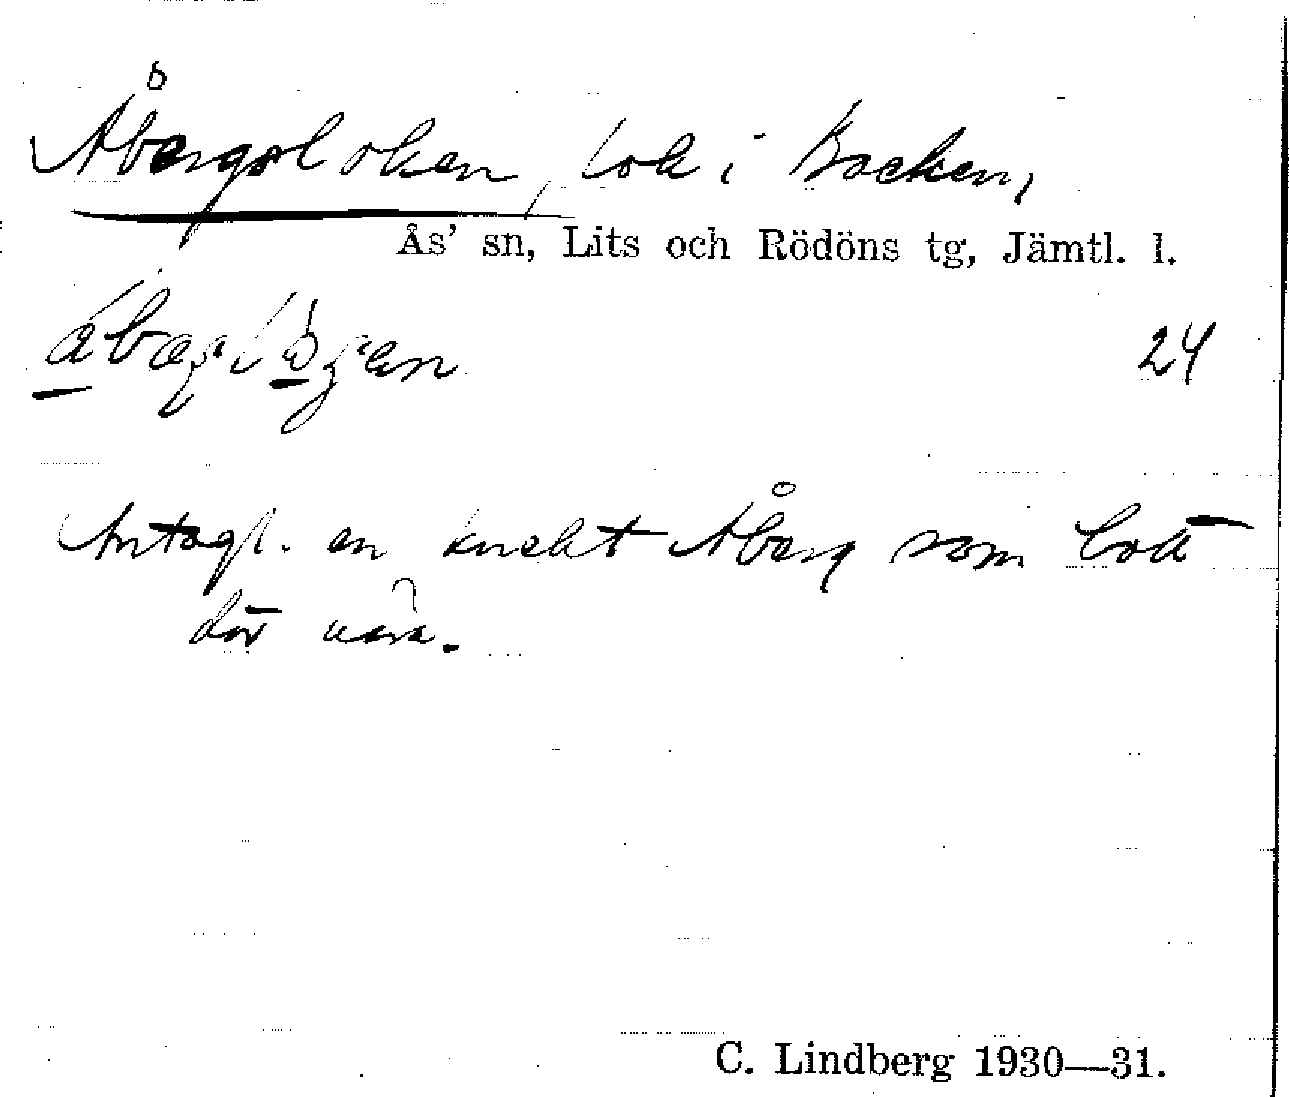 Åbergsloken, lok i Backen,
Ås' sn, Lits och Rödöns tg, Jämtl. l.
24
Antagl. en knekt Åberg som bott
där nära.
C. Lindberg 1930—31.